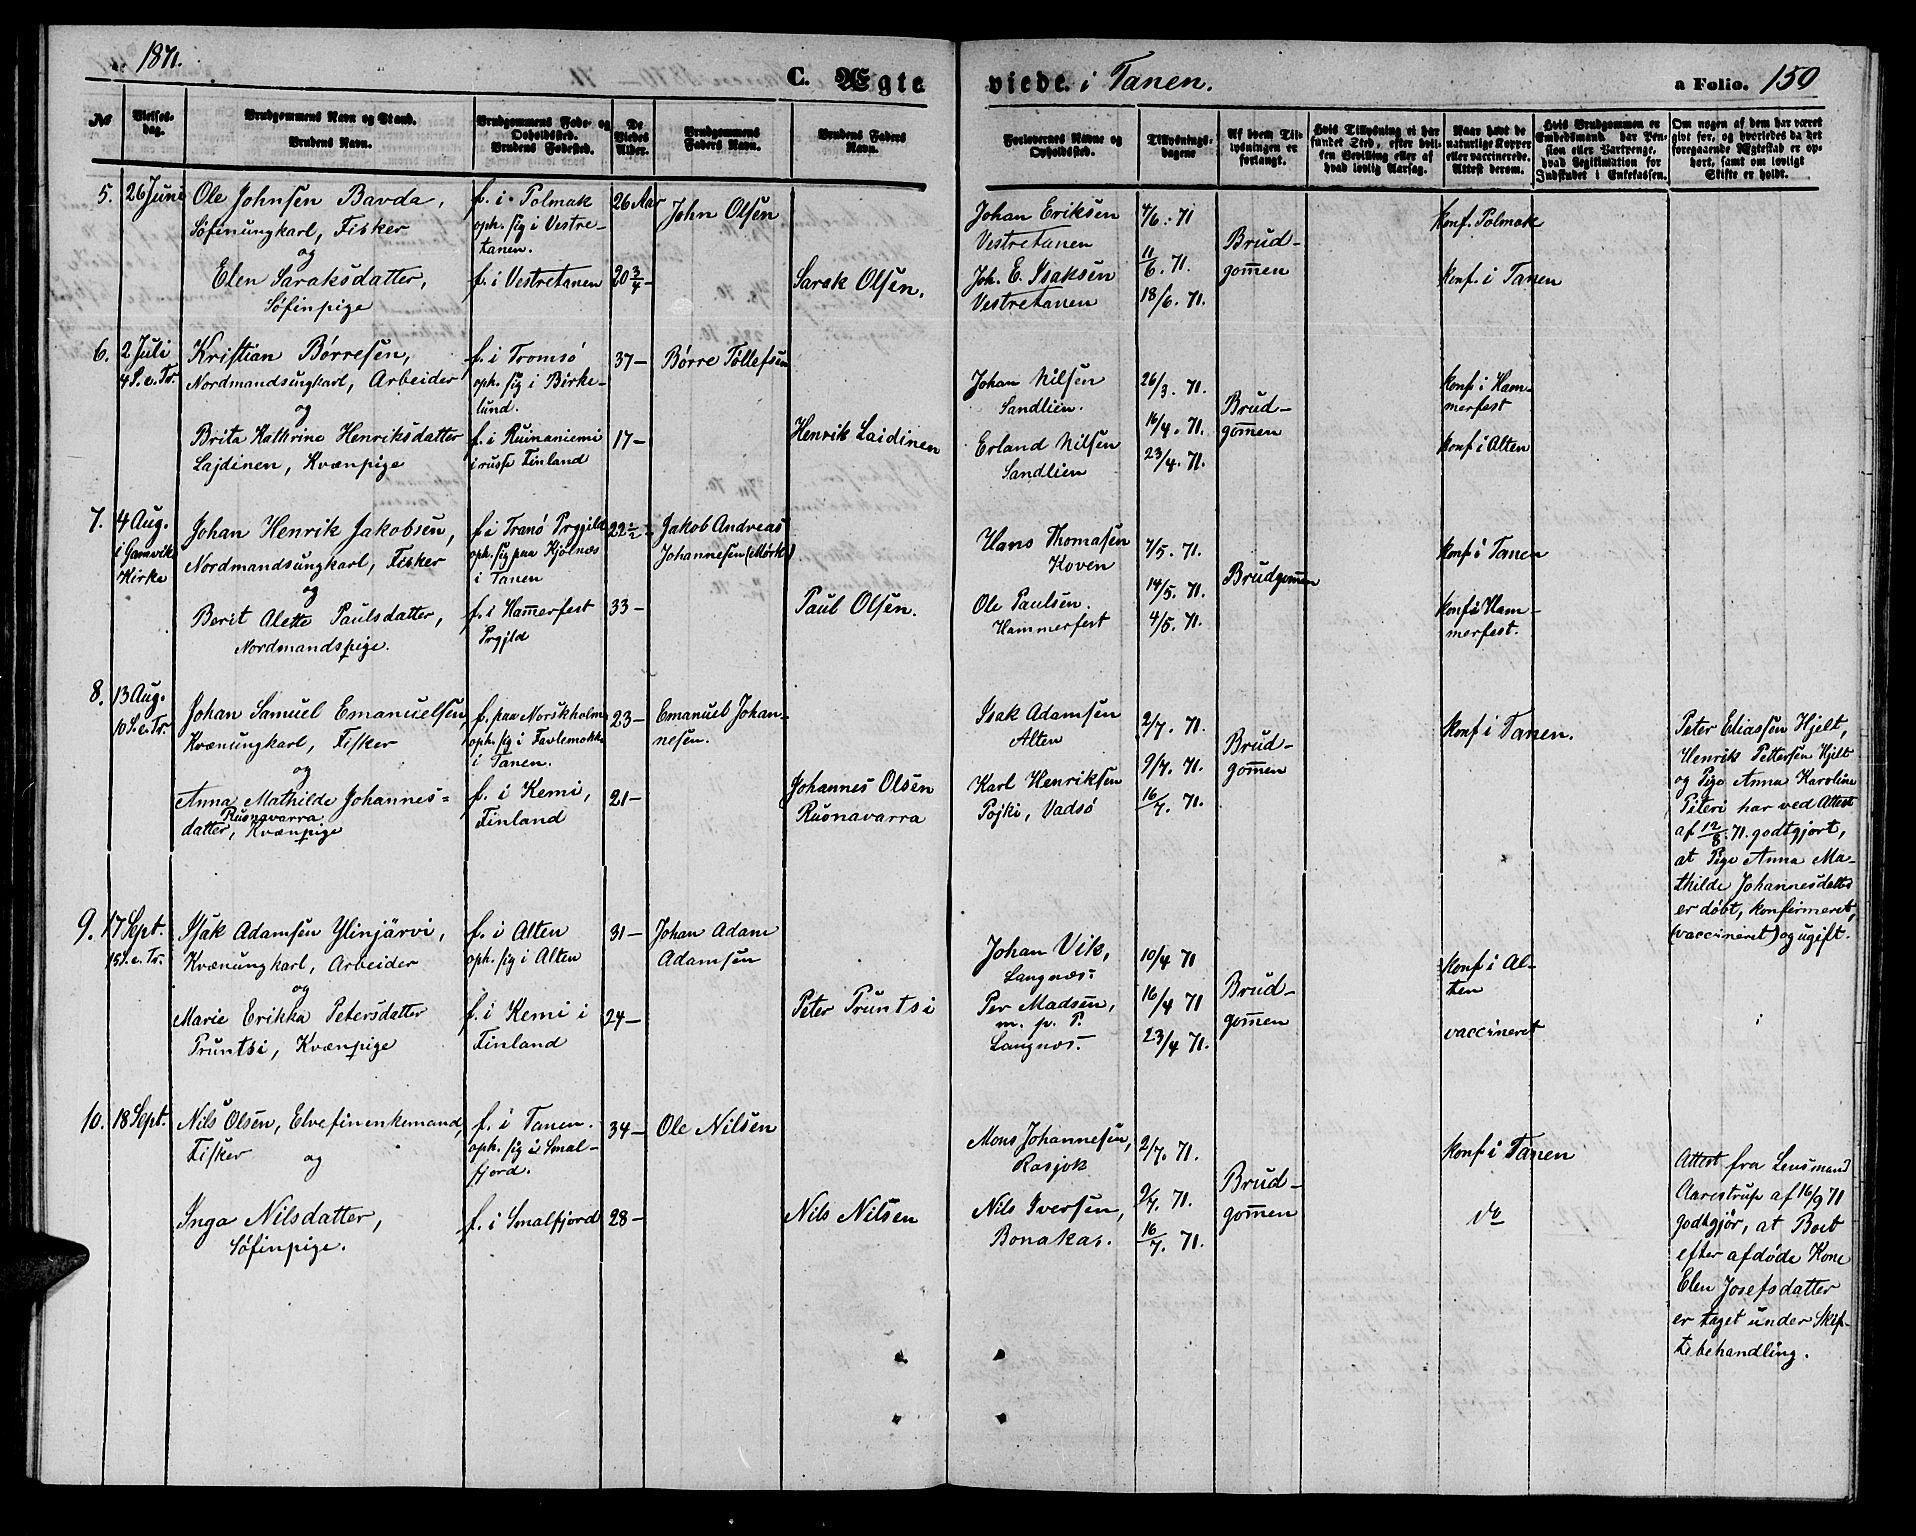 1871.
C. Ægte
viede i Tanen.
a Folio. 150
No
Vielses-
dag.
Brudgommens Navn og Stand.
Brudens Navn.
Brudgommens Føde- og
Opholdssted.
Brudens Fødested.
De
Viedes
Alder.
Brudgommens
Faders Navn.
Brudens Faders
Navn.
Forlovernes Navne og
Opholdssted.
Tillysnings-
dagene
Af hvem Til-
lysningen er
forlangt.
Hvis Tillysning ei har
fundet Sted, efter hvil-
ken Bevilling eller af
hvad lovlig Aarsag.
Naar havt de
naturlige Kopper
eller vaccinerede.
Attest derom.
Hvis Brudgommen er
Embedsmand, har Pen-
sion eller Vartpenge,
hvad Legitimation for
Indskudet i Enkekassen.
Om nogen af dem har været
gift før, og hvorledes da det
foregaaende Ægteskab er op-
hørt, samt om lovligt
Skifte er holdt.
5.
26 Juni
Ole Johnsen Bavda,
Søfinungkarl, Fisker
og
Elen Saraksdatter,
Søfinpige
f. i Polmak
oph. sig i Vestre-
tanen.
f. i Vestretanen
26 Aar
20 3/4 -
John Olsen
Sarak Olsen.
Johan Eriksen
Vestretanen
Joh. E. Isaksen
Vestretanen
4/6. 71
11/6. 71.
18/6. 71.
Brud-
gomen
konf. Polmak
konf. i Tanen
6.
2 Juli
4 S. e. Tr.
Kristian Børresen,
Nordmandsungkarl, Arbeider
og
Brita Kathrine Henriksdatter
Lajdinen, Kvænpige
f. i Tromsø
oph. sig i Birke-
lund.
f. i Ruinaniemi
i russe Finland
37 -
17 -
Børre Tollefsen
Henrik Laidinen
Johan Nilsen
Sandlien.
Erland Nilsen
Sandlien
26/3. 71.
16/4. 71.
23/4. 71.
Brud-
gomen
konf i Ham-
merfest
konf i Alten
7.
4 Aug.
i Gamvik
Kirke
Johan Henrik Jakobsen,
Nordmandsungkarl, Fisker
og
Berit Alette Paulsdatter,
Nordmandspige.
f. i Tranø Prgjld
oph. sig paa Kjølnæs
i Tanen
f. i Hamerfest
Prgjld
22 1/2 -
33 -
Jakob Andreas
Johannesen (Mørk)
Paul Olsen.
Hans Thomasen
Koven
Ole Paulsen.
Hammerfest
7/5. 71.
14/5. 71.
4/5. 71.
Brudgomen
konf i Tanen
konf i Ham-
merfest.
8.
13 Aug.
10 S. e. Tr.
Johan Samuel Emanuelsen,
Kvænungkarl, Fisker
og
Anna Mathilde Johannes-
Rusnavarra
datter, Kvænpige
f. paa Norskholm
oph. sig i Favlemokk
i Tanen.
f. i Kemi,
Finland
23 -
21 -
Emanuel Johan-
nesen.
Johannes Olsen
Rusnavarra
Isak Adamsen
Alten
Karl Henriksen
Pojki, Vadsø
2/7. 71.
9/7. 71.
16/7. 71.
Brud-
gomen
konf i Tanen.
Peter Eliassen Hjelt,
Henrik Pettersen Hjelt
og Pige Anna Karoline
Piteri har ved Attest
af 12/8. 71. godtgjort,
at Pige Anna Ma-
thilde Johannesdatter
er døbt, konfirmeret,
(vaccineret) og ugift.
9.
17 Sept.
15 S. e. Tr.
Isak Adamsen Ylinjärvi,
Kvænungkarl, Arbeider
og
Marie Erikka Petersdatter
Pruntsi, Kvænpige
f. i Alten
oph. sig i Alten
f. i Kemi i
Finland
31 -
24 -
Johan Adam
Adamsen
Peter Pruntsi
Johan Vik,
Langnæs.
Per Madsen,
m. p. P.
Langnæs.
10/4 71
16/4 71
23/4 71.
Brud-
gomen
konf i Al-
ten
vaccineret
10.
18 Sept.
Nils Olsen, Elvefinenkemand,
Fisker
og
Inga Nilsdatter,
Søfinpige.
f. i Tanen.
oph. sig i Smal-
fjord.
f. i Smalfjord
34 -
28 -
Ole Nilsen
Nils Nilsen
Mons Johannesen,
Rasjok
Nils Iversen,
Bonakas.
2/7. 71.
9/7. 71.
16/7. 71.
Brud-
gomen
konf i Tanen
do
Attest fra Lensmand
Aarestrup af 16/9 71
godtgjør, at Boet
efter afdøde Kone
Elen Josefsdatter
er taget under Skif-
tebehandling.